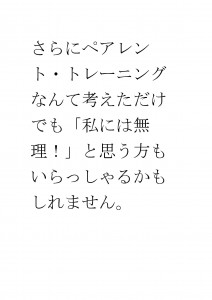 さらにペアレン
ト・トレーニング
なんて考えただけ
でも「私には無
理！」と思う方も
いらっしゃるかも
しれません。